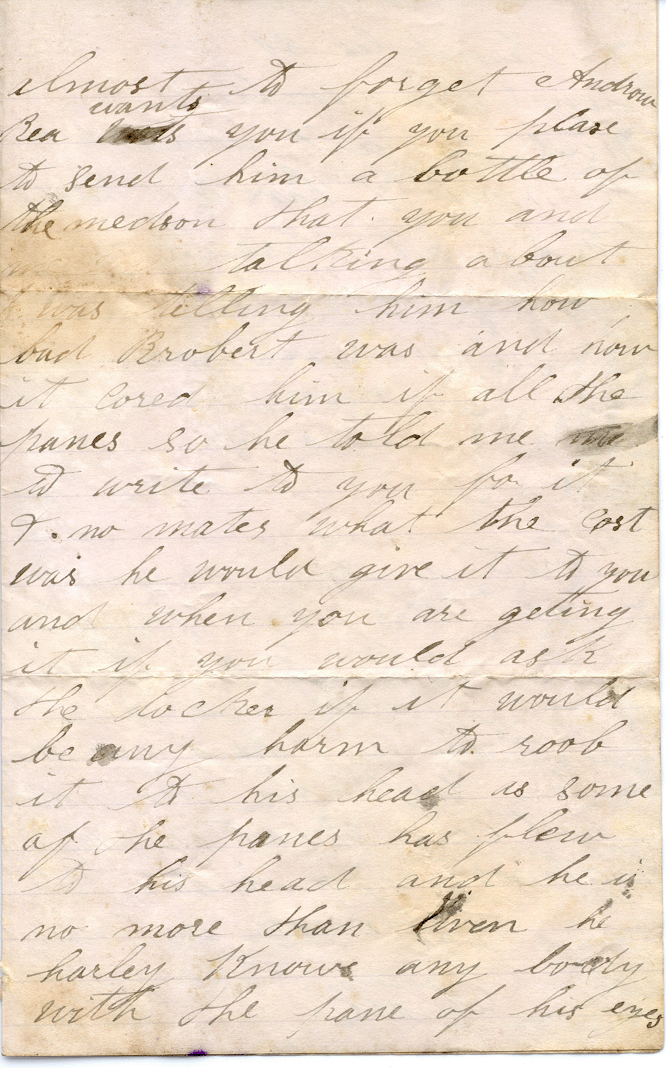 almost to forget Androw
Rea wants you if you plase
to send him a bottle of
the medson that you and
talking a bout
I was telling him how
bad Rrobert was and now
it cored him if all the
panes so he told me
to write to you for it
& no mater what the cost
was he would give it to you
and when you are geting
it if you would ask
the docker if it would
be any harm to roob
it to his head as some
of the panes has flew
to his head and he is
no more than liven he
harley Knows any boody
with the pane of his eyes